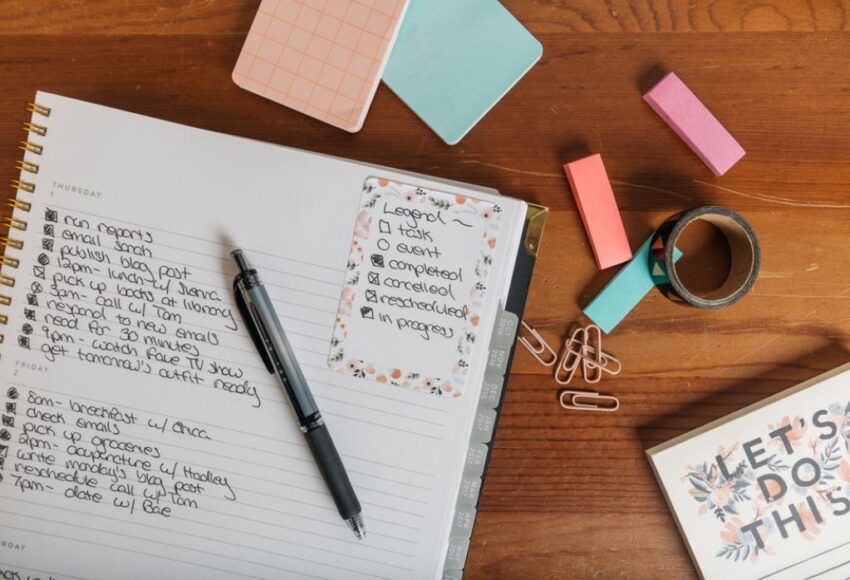 THURSDAY
1
run reports
email sarah
publish blog post
12pm- lunch w/ Sienna
pick up books at library
3pm- call w/ Tam
respond to new emails
read for 30 minutes
9pm- watch fave TV show
get tomorrow's outfit ready
FRIDAY
2
8am- breakfast w/ Erica
check emails
pick up groceries
2pm- acupuncture w/ Hadley
write monday's blog post
reschedule call w/ Tam
7pm- date w/ Bae
Legend ~
task
event
completed
cancelled
rescheduled
in progress
OCT
2016
NOV
2016
DEC
2016
JAN
2017
LET'S
DO
THIS